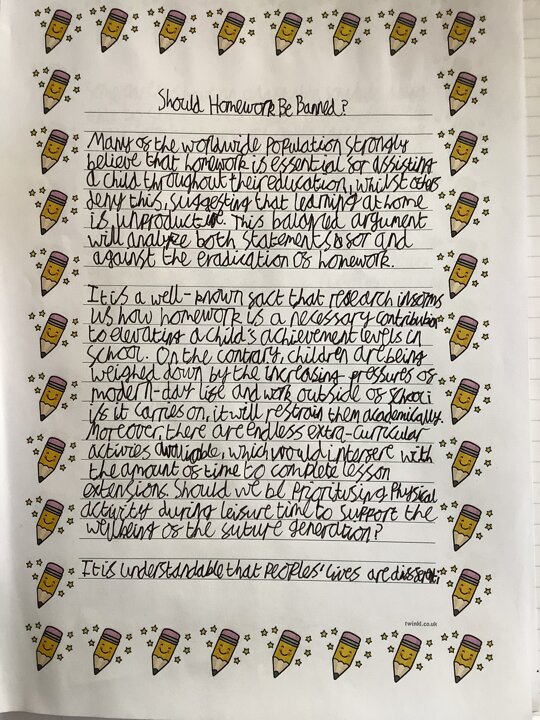 Should Homework Be Banned?
Many of the worldwide population strongly
believe that homework is essential for assisting
a child throughout their education, whilst others
deny this, suggesting that learning at home
is unproductive. This balanced argument
will analyse both statements for and
against the eradication of homework.
It is a well-known fact that research informs
us how homework is a necessary contribution
to elevating a child's achievement levels in
school. On the contrary, children are being
weighed down by the increasing pressures of
modern-day life and work outside of school;
if it carries on, it will restrain them academically.
Moreover, there are endless extra-curricular
activies available, which would interfere with
the amount of time to complete lesson
extensions. Should we be prioritising physical
activity during leisure time to support the
wellbeing of the future generation?
It is understandable that peoples' lives are
twinkl.co.uk